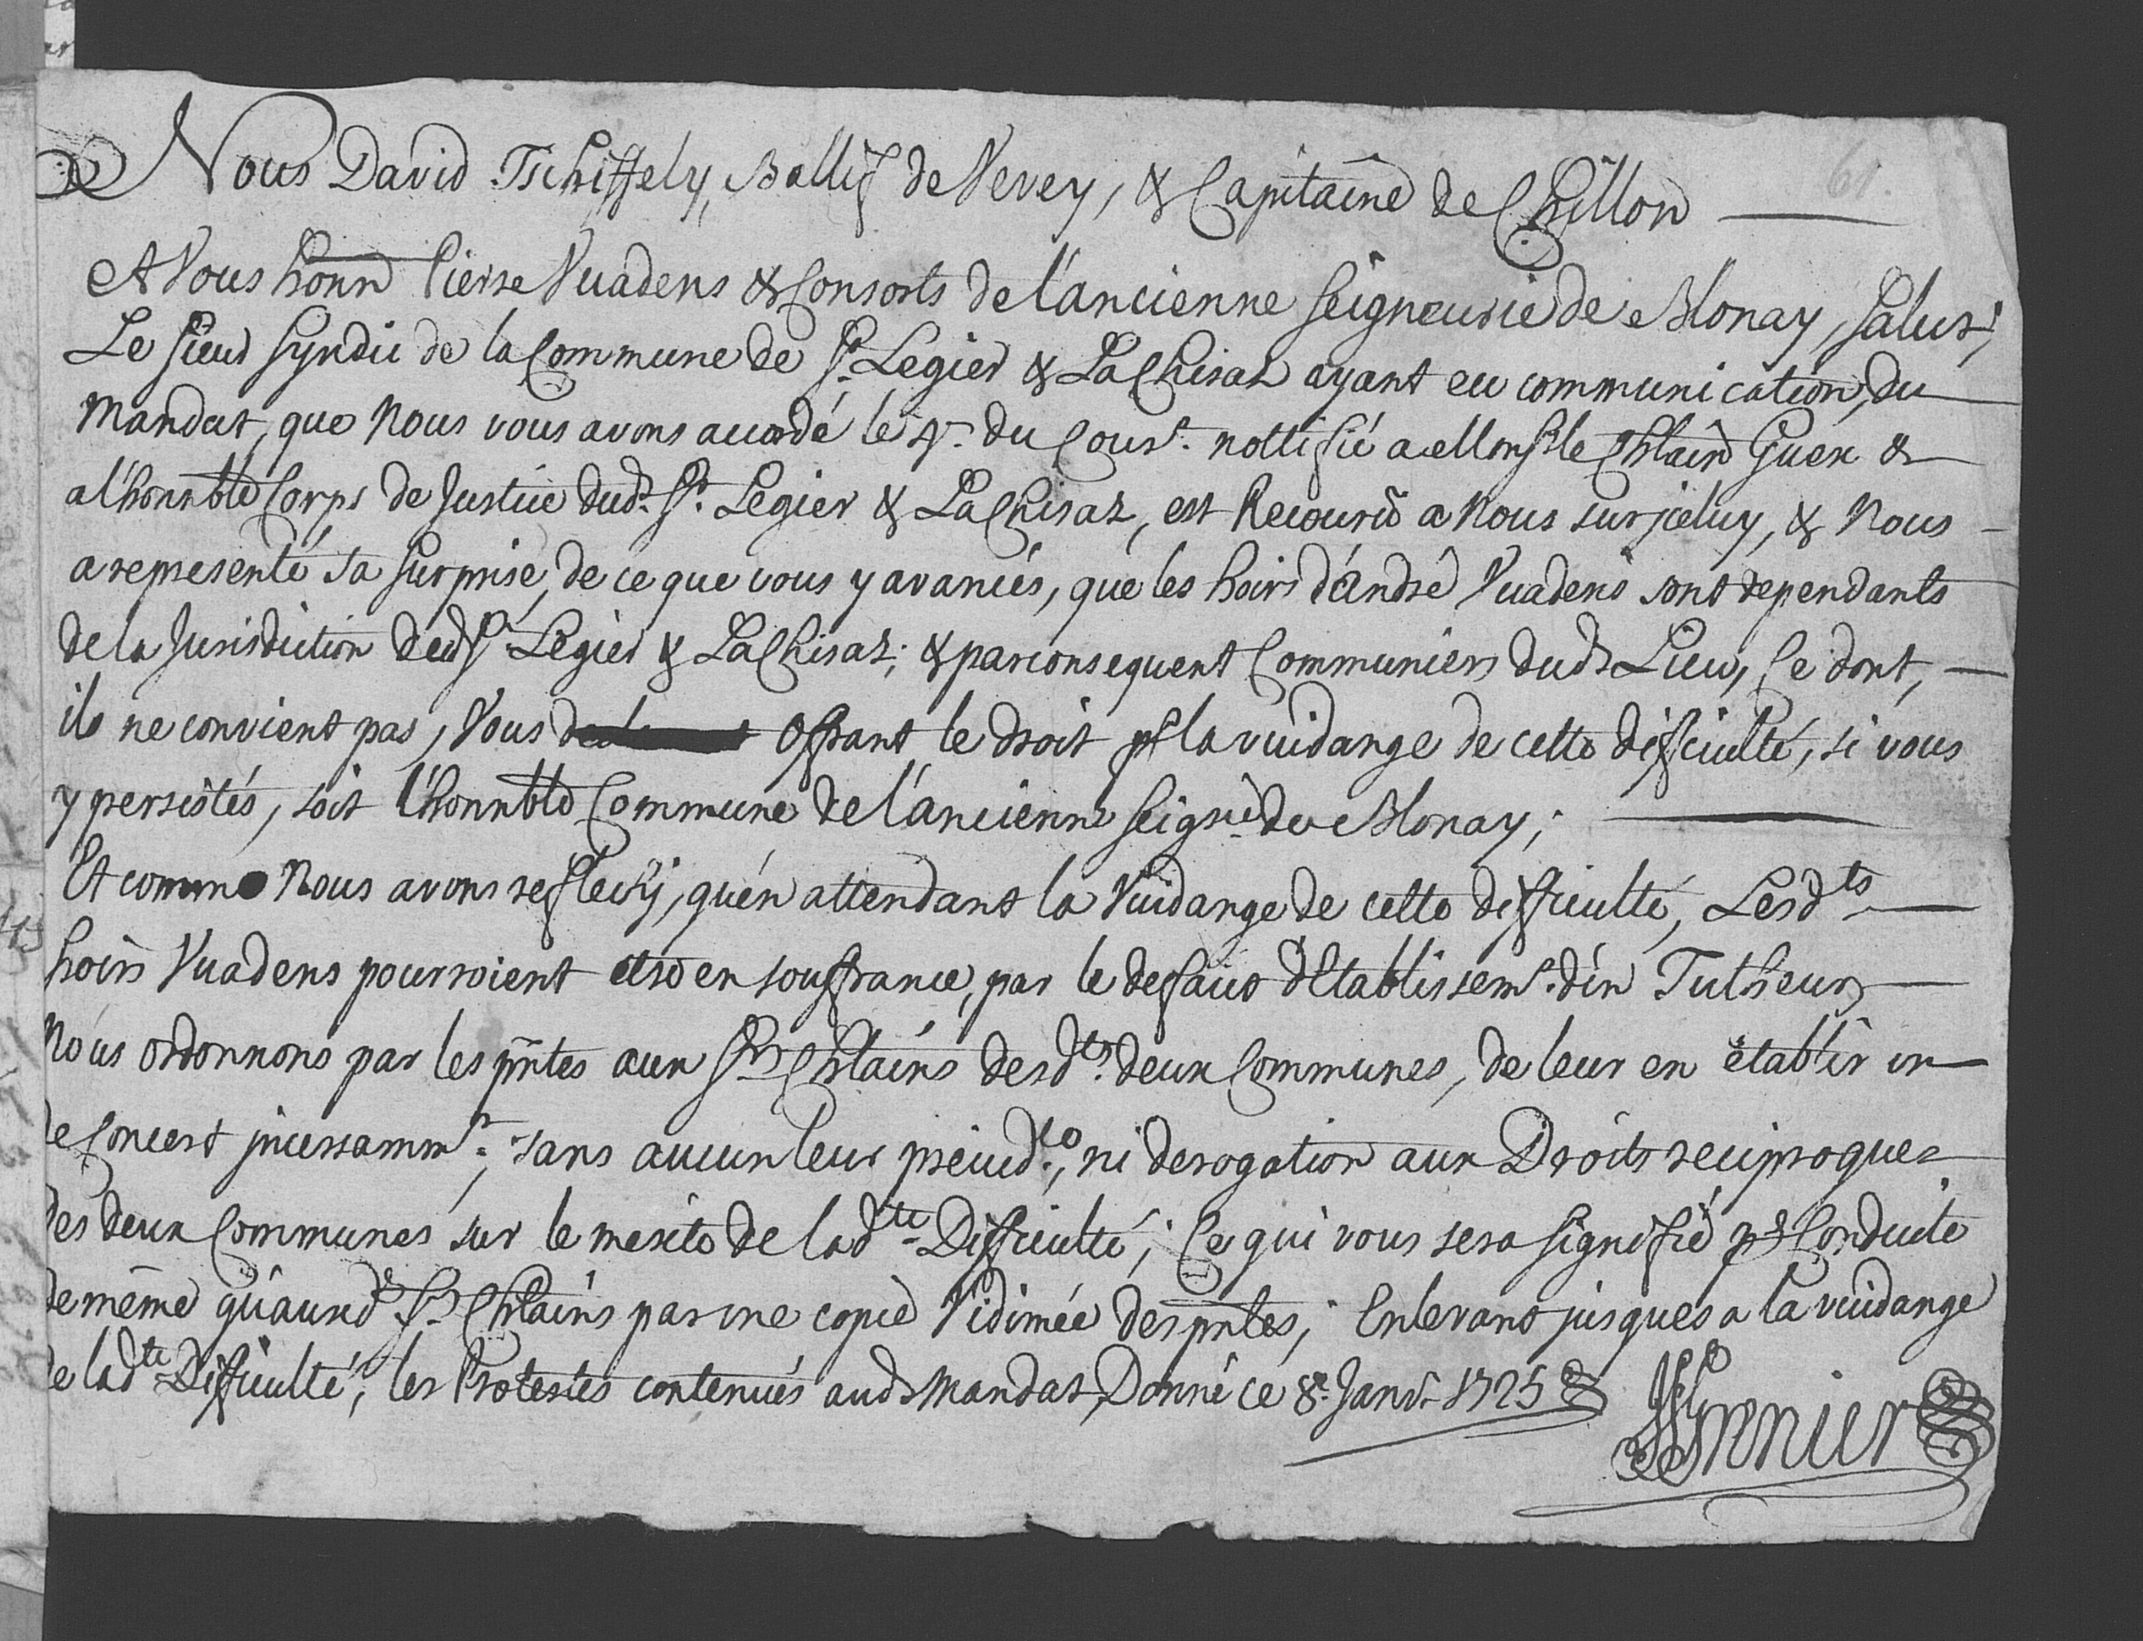 61.
Nous David Tschiffely, Ballif de Vevey, & Capitaine de Chillon
A Vous honn Pierre Vuadens & Consorts de l'ancienne Seigneurie de Blonay, Salut;
Le Sieur Syndic de la Commune de St. Legier & La Chisaz ayant eu communication, du
Mandat, que Nous vous avons accordé le 4e. du Court. nottifié a Monsr le Chlain Guex &
a l'honnble Corps de Justice dudt. St. Legier & La Chisaz, est Recouru a Nous sur jceluy, & Nous
a representé sa surprise, de ce que vous y avancés, que les hoirs d'André Vuadens sont dependants
de la Jurisdiction dedt St. Legier & La Chisaz; & par consequent Communiers dudt Lieu, Ce dont,
ils ne convient pas, Vous Offrant le droit pr la vuidange de cette difficulté, si vous
y persistés, soit l'honnble Commune de l'ancienne Seigrie de Blonay;
Et comme Nous avons reflechj, qu'en attendant la Vuidange de cette difficulté, Lesdts
hoirs Vuadens pourroient etre en souffrance, par le deffaut d'Etablissemt. d'un Tutheur
Nous ordonnons par les pntes aux Srs Chlains desdts. deux Communes, de leur en établir un
de Concert jncessammt., sans aucun leur prejudce, ni derogation aux Droits reciproques
des deux Communes sur le merite de ladte Difficulté; Ce qui vous sera signifié pr Conduite
de même qu'auxdt Srs Chlains par une copie Vidimée des pntes; Enlevant jusques a la vuidange
de ladte Difficulté, les Protestes contenués audt Mandat, Donné ce 8e. Janvr 1725